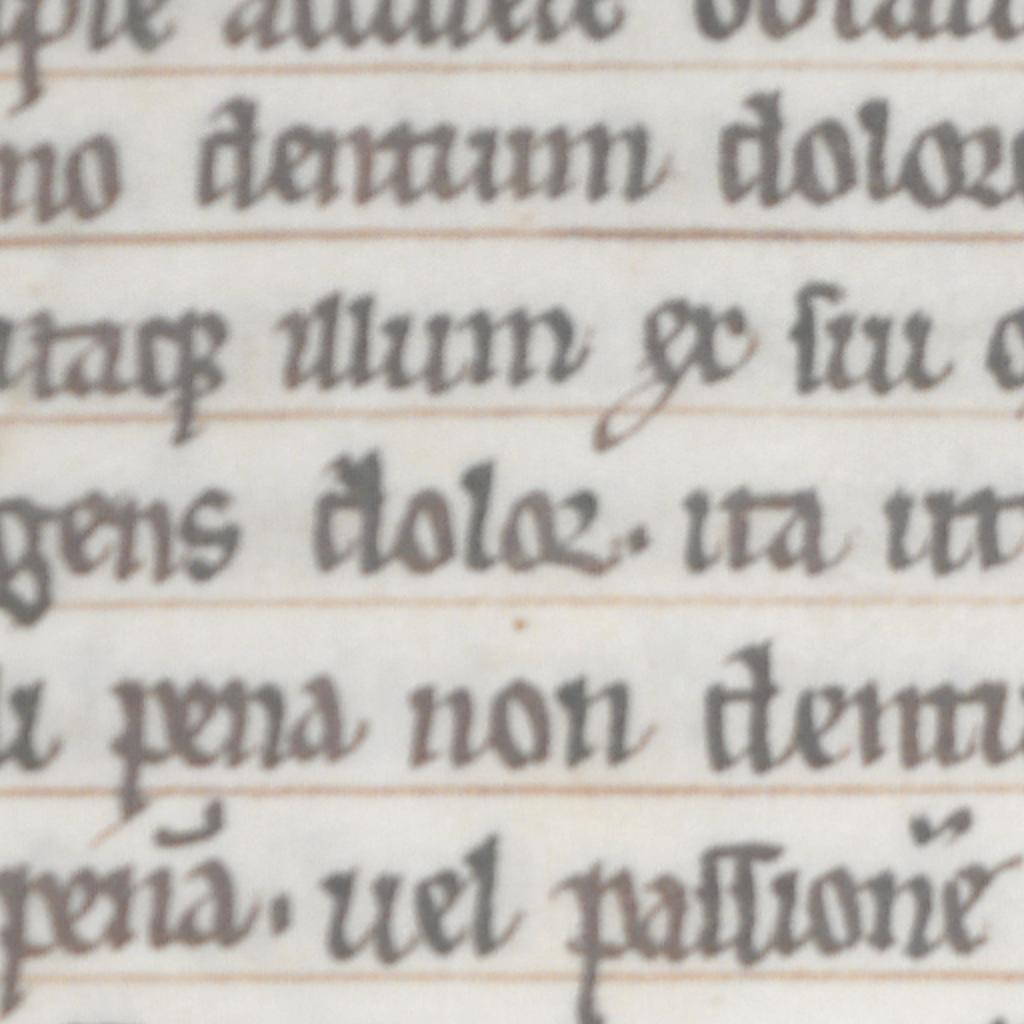 no dentum dolore
ataqꝫ illum ex siu
gens dolor. ita ut
pena non dentu
penā. uel passionē